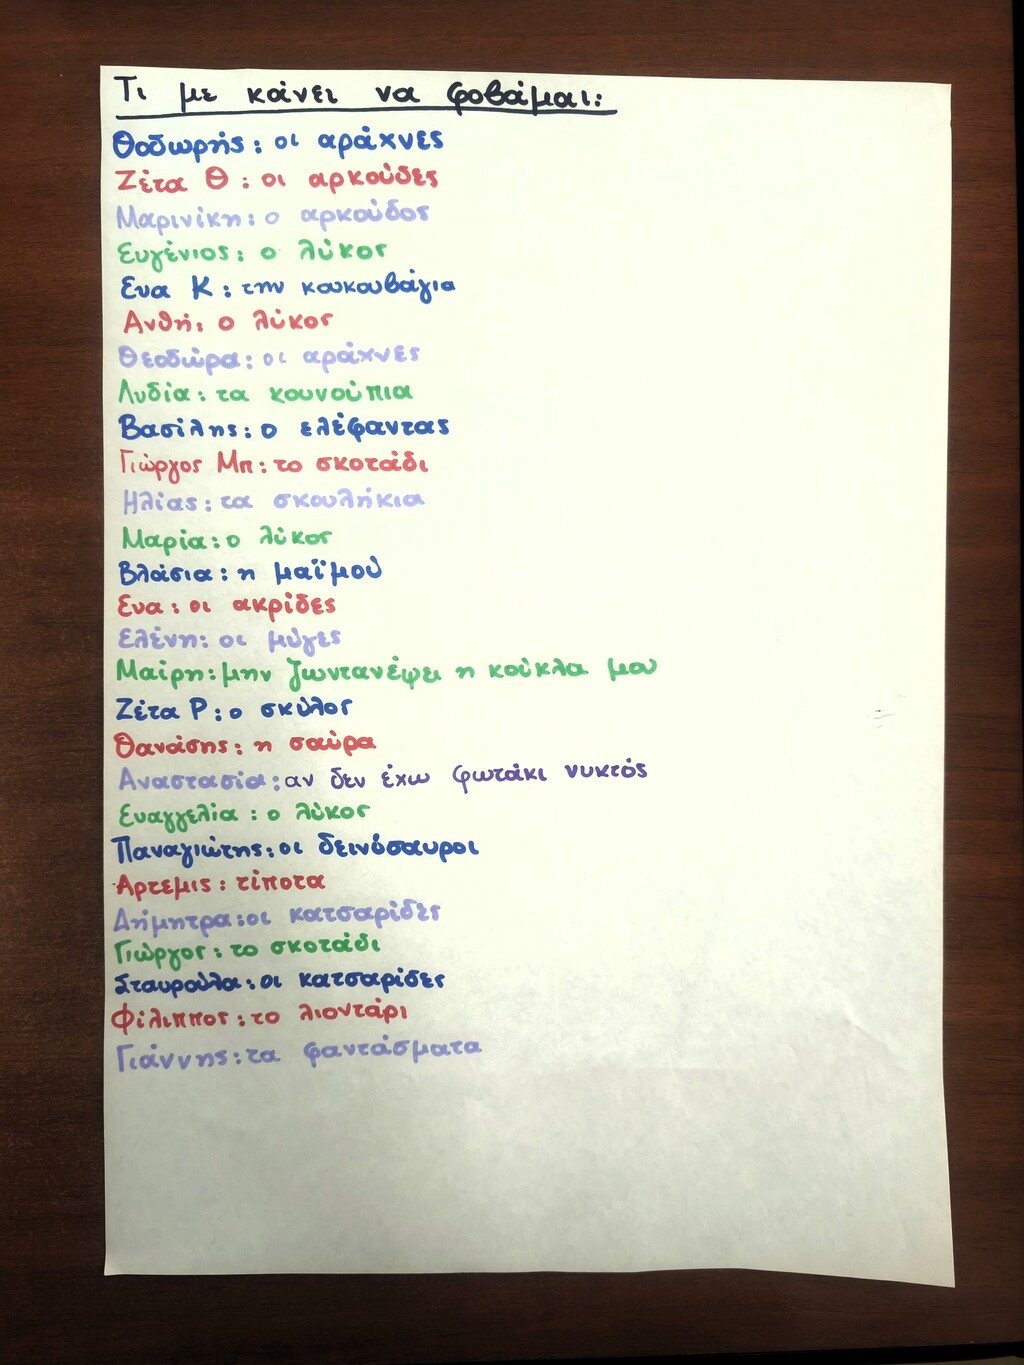 Τι με κάνει να φοβάμαι:
Θοδωρής: οι αράχνες
Ζέτα Θ: οι αρκούδες
Μαρινίκη: ο αρκούδος
Ευγένιος: ο λύκος
Ευα Κ: την κουκουβάγια
Ανθή: ο λύκος
Θεοδώρα: οι αράχνες
Λυδία: τα κουνούπια
Βασίλης: ο ελέφαντας
Γιώργος Μπ: το σκοτάδι
Ηλίας: τα σκουλήκια
Μαρία: ο λύκος
Βλάσια: η μαϊμού
Ευα: οι ακρίδες
Ελένη: οι μύγες
Μαίρη: μην ζωντανέψει η κούκλα μου
Ζέτα Ρ: ο σκύλος
Θανάσης: η σαύρα
Αναστασία: αν δεν έχω φωτάκι νυκτός
Ευαγγελία: ο λύκος
Παναγιώτης: οι δεινόσαυροι
Αρτεμις: τίποτα
Δήμητρα: οι κατσαρίδες
Γιώργος: το σκοτάδι
Σταυρούλα: οι κατσαρίδες
Φίλιππος: το λιοντάρι
Γιάννης: τα φαντάσματα